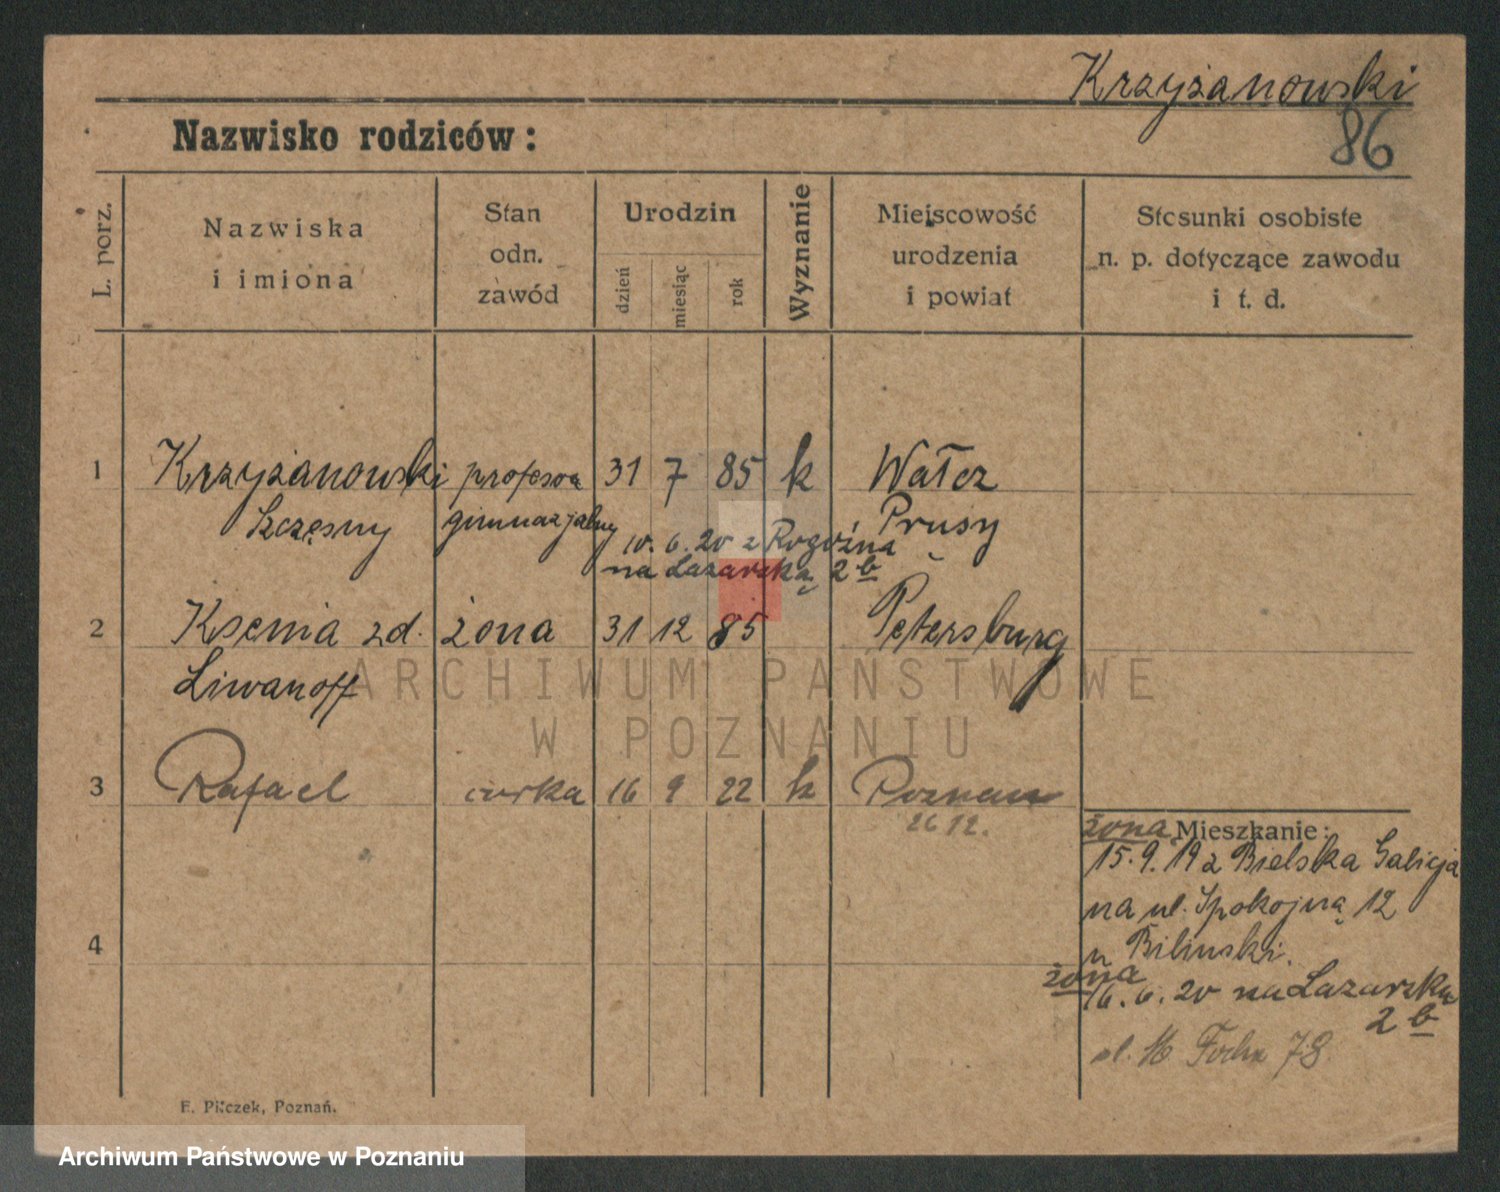 Krzyżanowski
86
Nazwisko rodziców:
L. porz.
Nazwiska
i imiona
Stan
odn.
zawód
Urodzin
dzień
miesiąc
rok
Wyznanie
Miejscowość
urodzenia
i powiat
Stosunki osobiste
n. p. dotyczące zawodu
i t. d.
1 Krzyżanowski profesor 31 7 85 k Wałcz
Szczęsny gimnazjalny Prusy
10. 6. 20 z Rogoźna
na Łazarską 2 b
2 Ksenia zd. żona 31 12 85 Petersburg
Liwanoff
3 Rafael córka 16 9 22 k Poznań
26 12.
4
żona Mieszkanie:
15. 9. 19 z Bielska Galicja
na ul. Spokojną 12
u Biliński.
żona
16. 6. 20 na Łazarską
2 b
ul. M Focha 78
E. Pilczek, Poznań.
ARCHIWUM PAŃSTWOWE
W POZNANIU
Archiwum Państwowe w Poznaniu